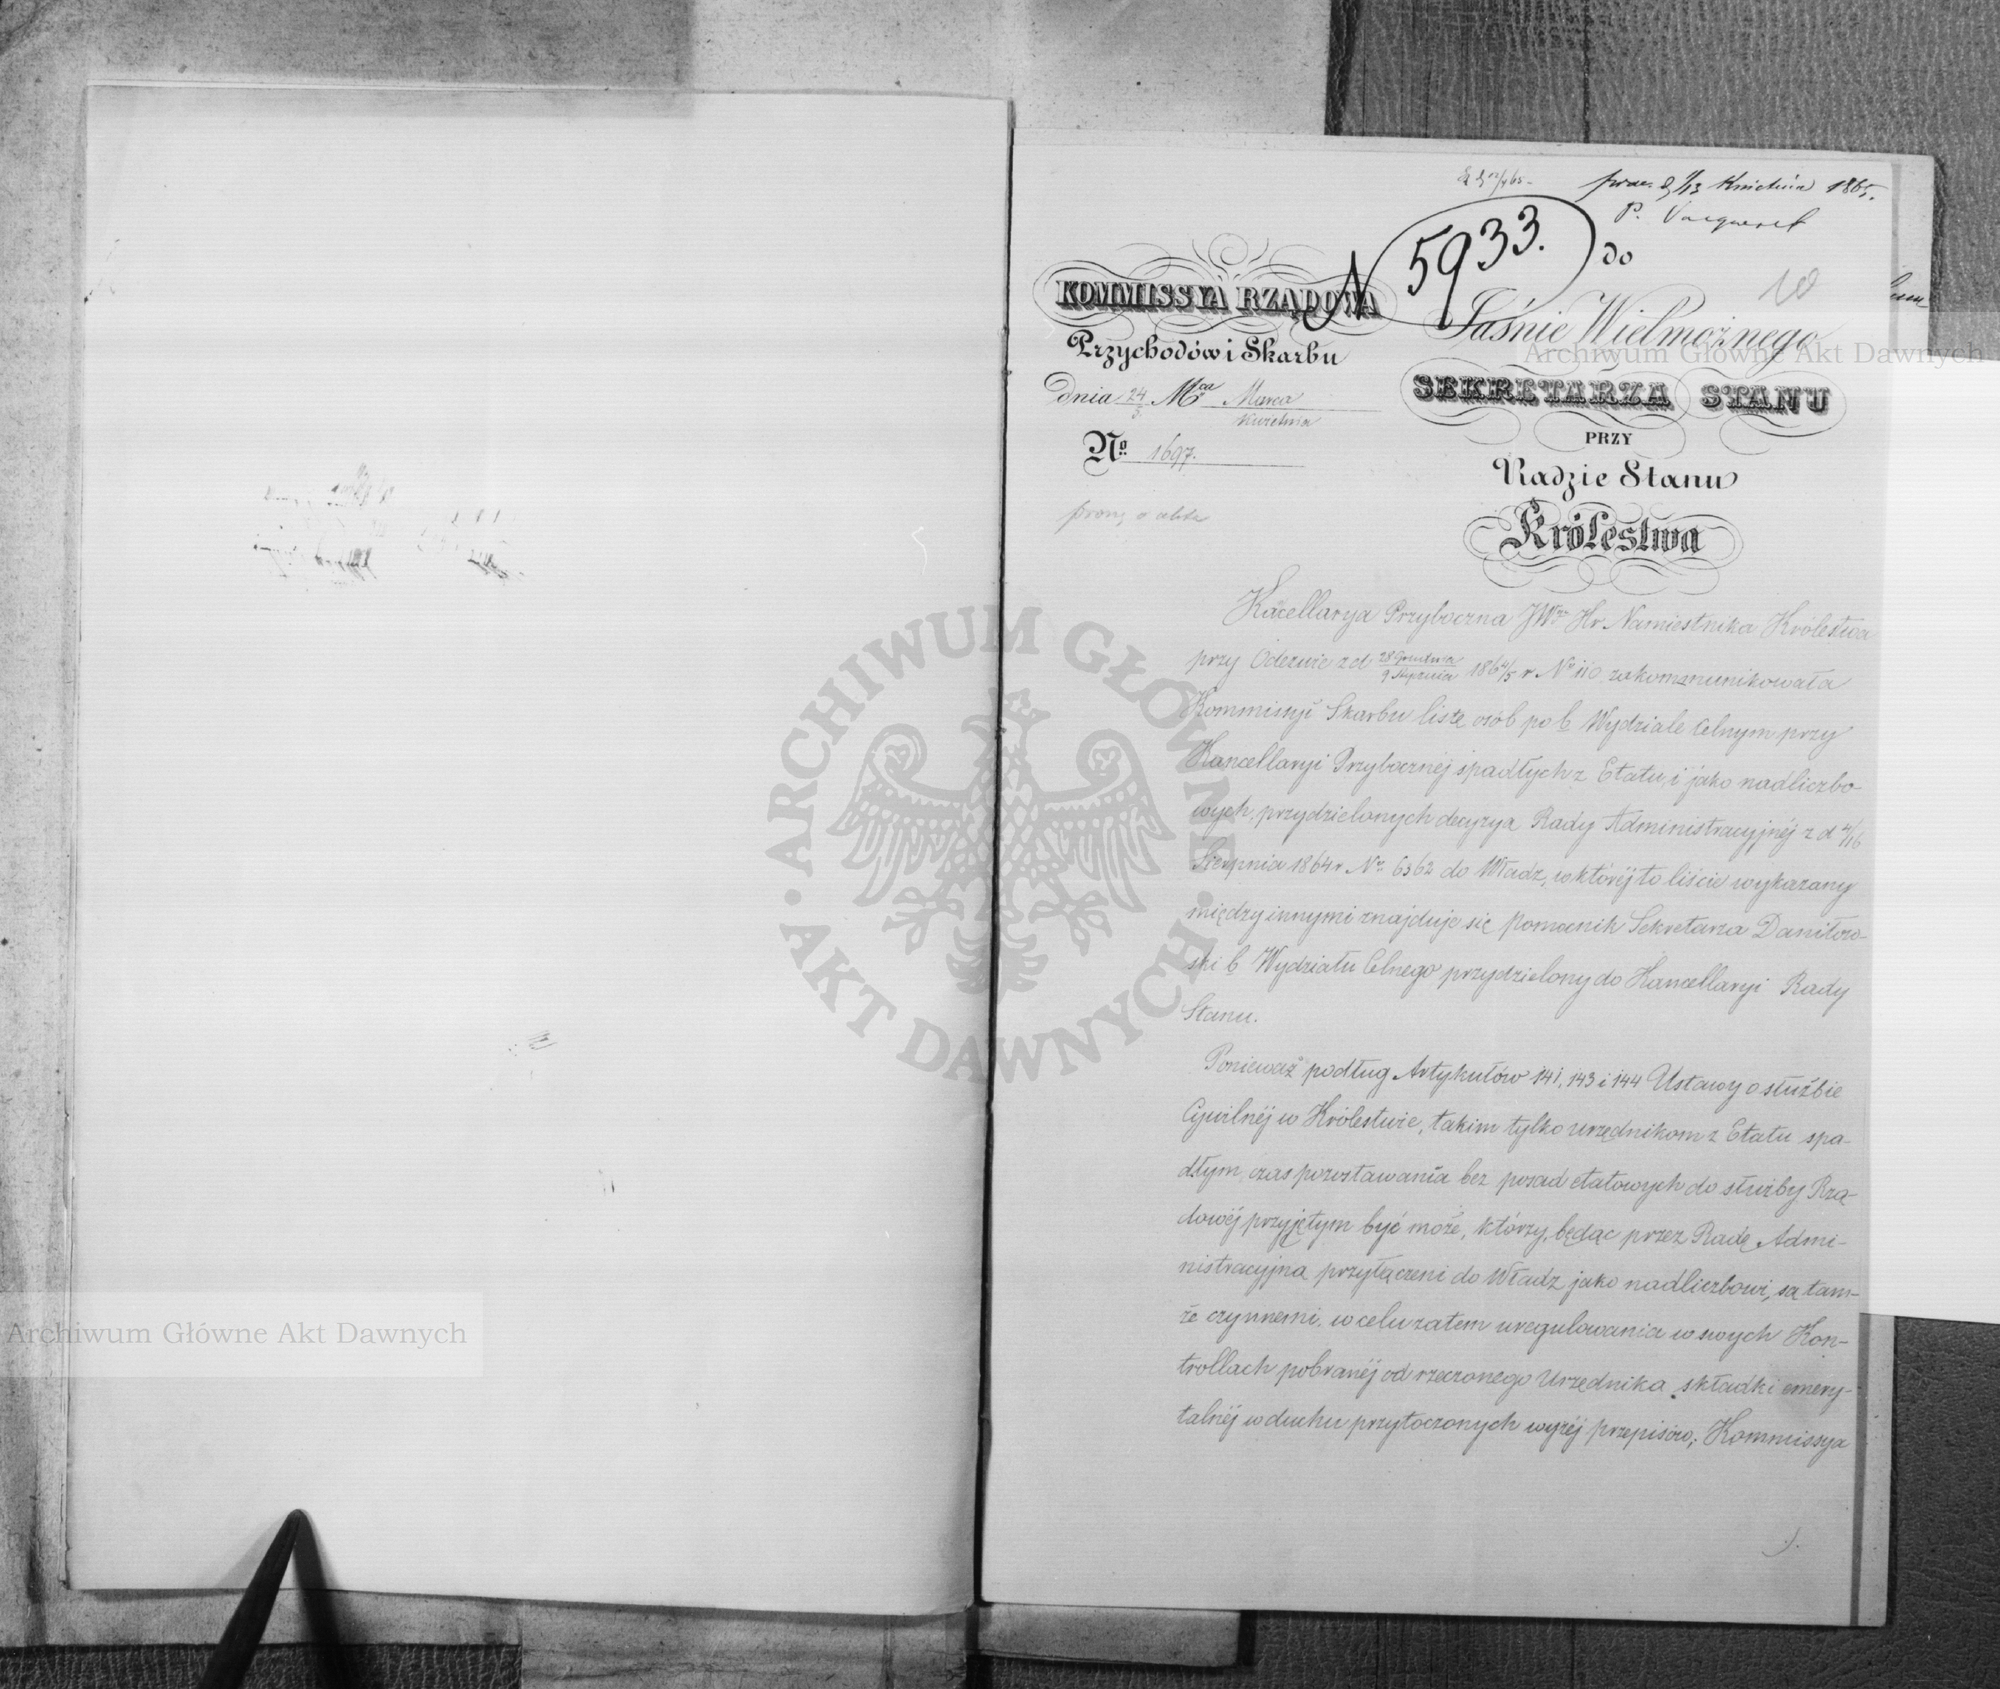 prez. d 1/13 Kwietnia 1865.
N 5933.
KOMMISSYA RZĄDOWA
Przychodów i Skarbu
dnia 24/5 Mca Marca/Kwietnia
No 1697.
do
10
Jaśnie Wielmożnego
SEKRETARZA STANU
PRZY
Radzie Stanu
Królestwa
Kancellarya Przyboczna JWo Hr. Namiestnika Królestwa
przy Odezwie z d 28 Grudnia/9 Stycznia 1864/5 r No 110 zakommunikowała
Kommissyi Skarbu listę osób po b Wydziale Celnym przy
Kancellaryi Przybocznéj spadłych z Etatu, i jako nadliczbo-
wych, przydzielonych decyzya Rady Administracyjnéj z d 4/16
Sierpnia 1864 r No 6362 do Władz, w któréj to liście wykazany
między innymi znajduje się pomocnik Sekretarza Daniłow-
ski b Wydziału Celnego przydzielony do Kancellaryi Rady
Stanu.
Ponieważ podług Artykułów 141, 143 i 144 Ustawy o służbie
Cywilnéj w Królestwie, takim tylko urzędnikom z Etatu spa-
dłym, czas pozostawania bez posad etatowych do służby Rzą-
dowéj przyjętym być może, którzy, będąc przez Radę Admi-
nistracyjna przyłączeni do Władz jako nadliczbowi, są tam-
że czynnemi, w celu zatem uregulowania w swych Kon-
trollach pobranéj od rzeczonego Urzędnika składki emery-
talnéj w duchu przytoczonych wyżéj przepisów; Kommissya
Archiwum Główne Akt Dawnych
Archiwum Główne Akt Dawnych
ARCHIWUM GŁÓWNE · AKT DAWNYCH ·